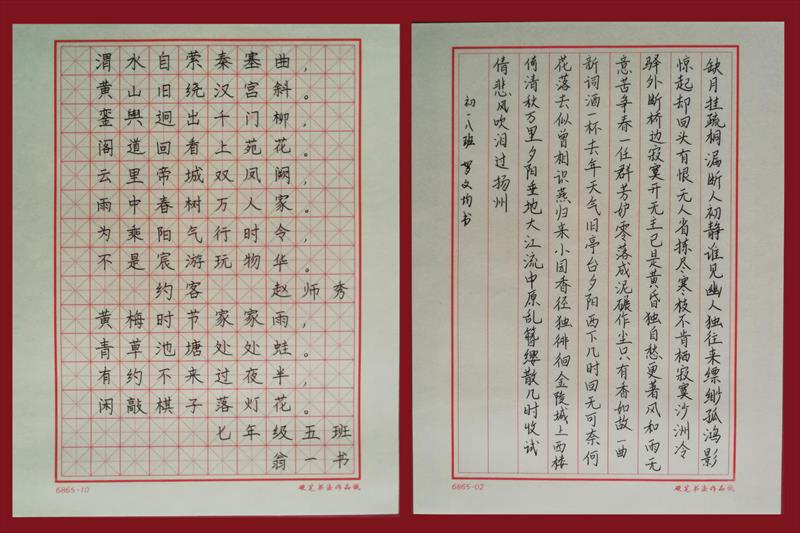 渭水自萦秦塞曲，
黄山旧绕汉宫斜。
銮舆迥出千门柳，
阁道回看上苑花。
云里帝城双凤阙，
雨中春树万人家。
为乘阳气行时令，
不是宸游玩物华。
约客 赵师秀
黄梅时节家家雨，
青草池塘处处蛙。
有约不来过夜半，
闲敲棋子落灯花。
七年级五班
翁一书
6865-10
硬笔书法作品纸
缺月挂疏桐漏断人初静谁见幽人独往来缥缈孤鸿影
惊起却回头有恨无人省拣尽寒枝不肯栖寂寞沙洲冷
驿外断桥边寂寞开无主已是黄昏独自愁更著风和雨无
意苦争春一任群芳妒零落成泥碾作尘只有香如故一曲
新词酒一杯去年天气旧亭台夕阳西下几时回无可奈何
花落去似曾相识燕归来小园香径独徘徊金陵城上西楼
倚清秋万里夕阳垂地大江流中原乱簪缨散几时收试
倩悲风吹泪过扬州
初一八班 文均书
6865-02
硬笔书法作品纸